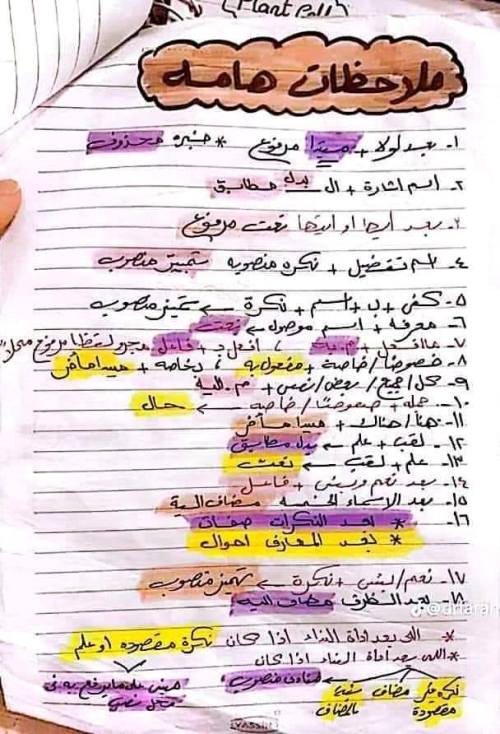 Plant Cell
ملاحظات هامه
١- بعد لولا + مبتدا مرفوع * خبره محذوف
٢- اسم اشارة + ال بدل مطابق
٣- بعد ايها او ايتها نعت مرفوع
٤- اسم تفضيل + نكره منصوبه تمييز منصوب
٥- كفى + ب + اسم + نكرة ← تمييز منصوب
٦- معرفه + اسم موصول ← نعت
٧- ما افعل + م. به ، افعل بـ + فاعل مجرور لفظا مرفوع محلا
٨- خصوصا / خاصة + مفعول به ، بخاصه + مبتدا مأخر
٩- كل / جميع / بعض / نفس + م. اليه
١٠- جمله + خصوصا / خاصه ← حال
١١- هنا / هناك + مبتدا مأخر
١٢- لقب + علم ← بدل مطابق
١٣- علم + لقب ← نعت
١٤- بعد نعم وبئس + فاعل
١٥- بعد الاسماء الخمسه مضاف اليه
١٦- * بعد النكرات صفات
* بعد المعارف احوال
١٧- نعم / بئس + نكرة ← تمييز منصوب
١٨- بعد الظرف مضاف اليه
* التى بعد اداة النداء اذا كان نكرة مقصوده او علم
* اللى بعد أداة النداء اذا كان
مبنى على ما يرفع به فى محل نصب
منادى منصوب
نكره غير مقصودة
مضاف
شبيه بالمضاف
YASSIN